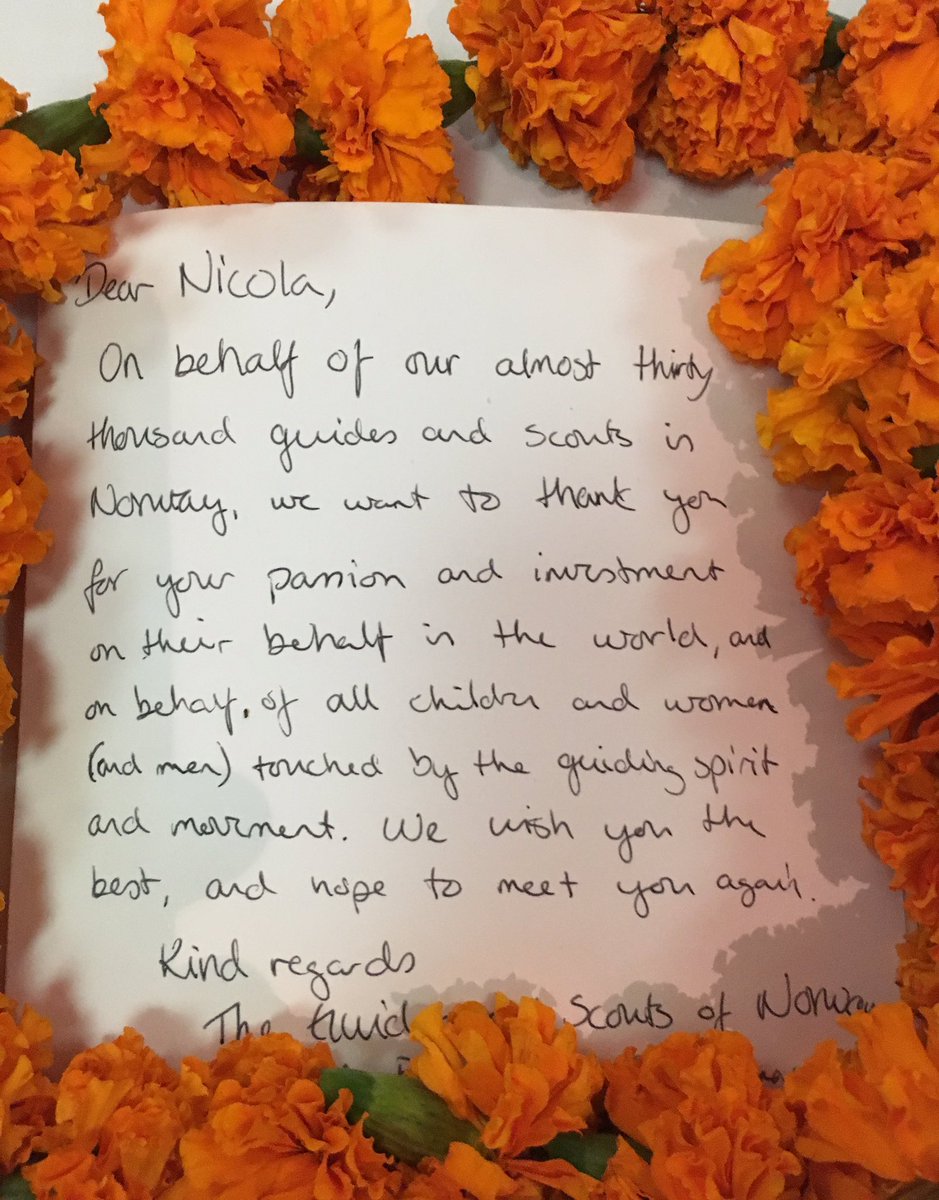 Dear Nicola,
On behalf of our almost thirty
thousand guides and scouts in
Norway, we want to thank you
for your passion and investment
on their behalf in the world, and
on behalf of all children and women
(and men) touched by the guiding spirit
and movement. We wish you the
best, and hope to meet you again.
Kind regards
The Guid Scouts of Norway